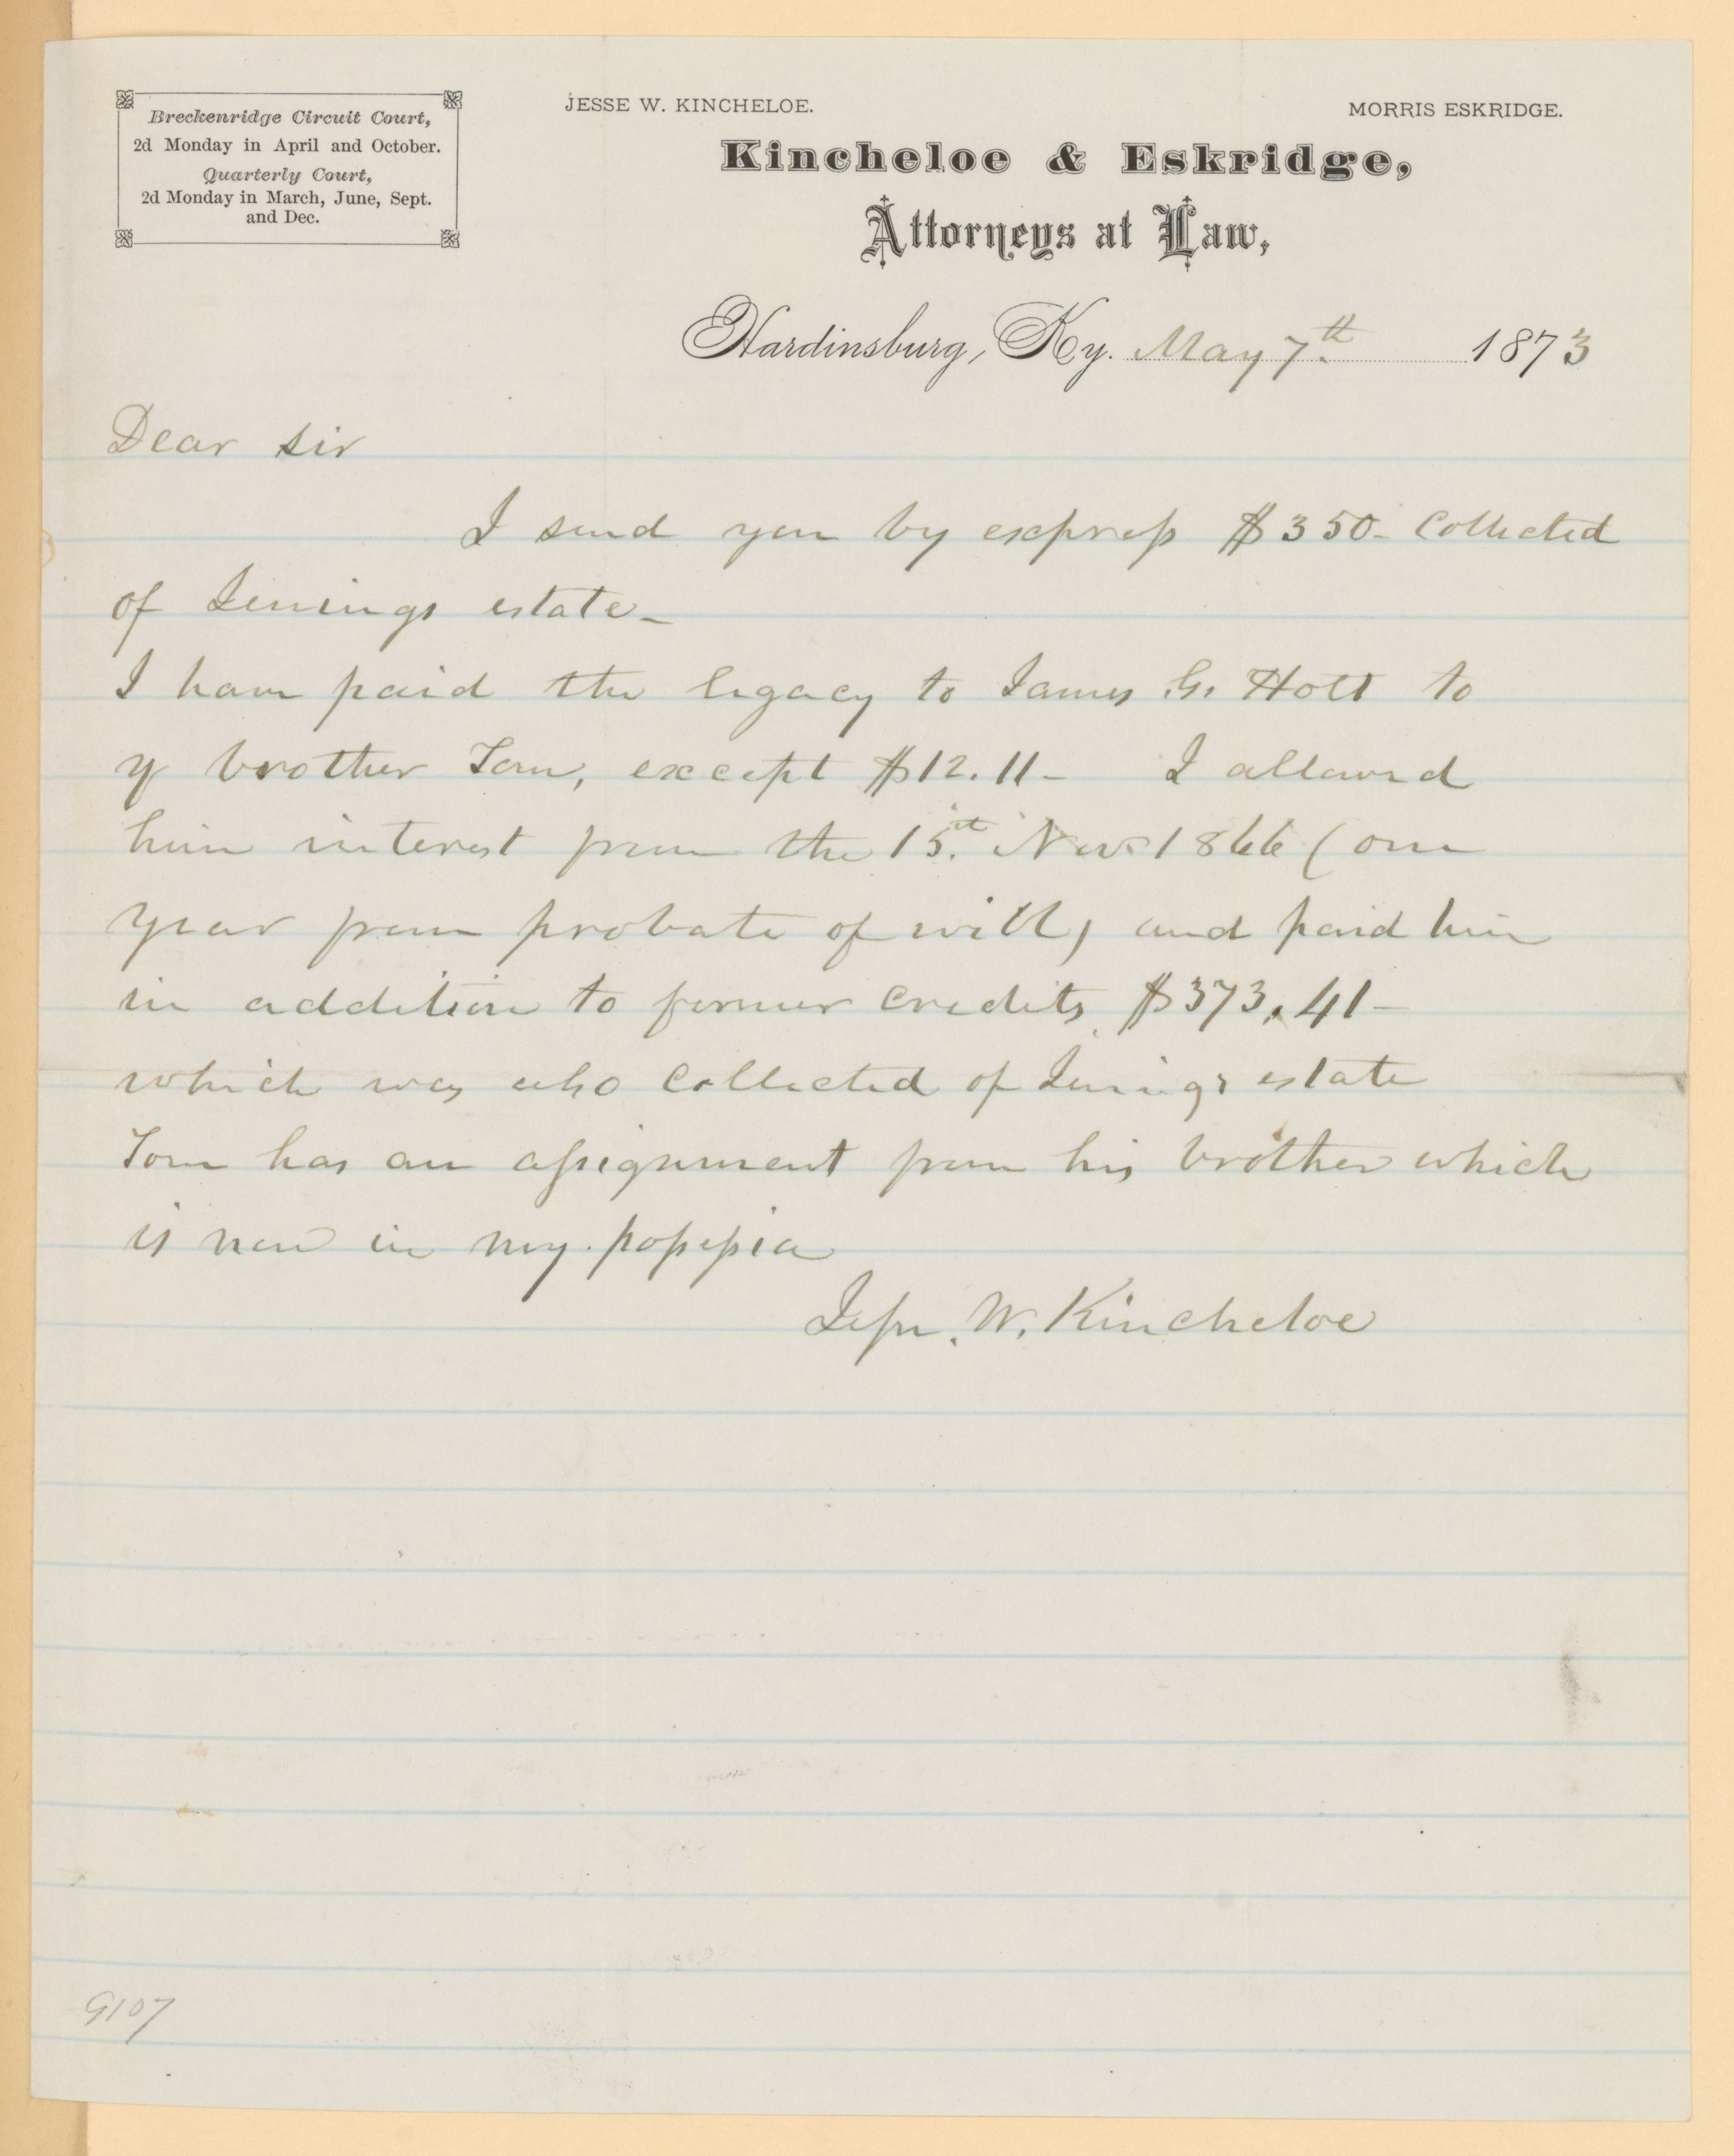 Breckenridge Circuit Court,
2d Monday in April and October.
Quarterly Court,
2d Monday in March, June, Sept.
and Dec.
JESSE W. KINCHELOE.
MORRIS ESKRIDGE.
Kincheloe & Eskridge,
Attorneys at Law,
Hardinsburg, Ky. May 7th 1873
Dear sir
I send you by express $350- collected
of Jennings estate-
I have paid the legacy to James G. Holt to
yr brother Tom, except $12.11- I allowed
him interest from the 15th Nov 1866 (one
year from probate of will) and paid him
in addition to former credits $373.41-
which was also collected of Jenings estate
Tom has an assignment from his brother which
is now in my possession
Jesse W. Kincheloe
9107